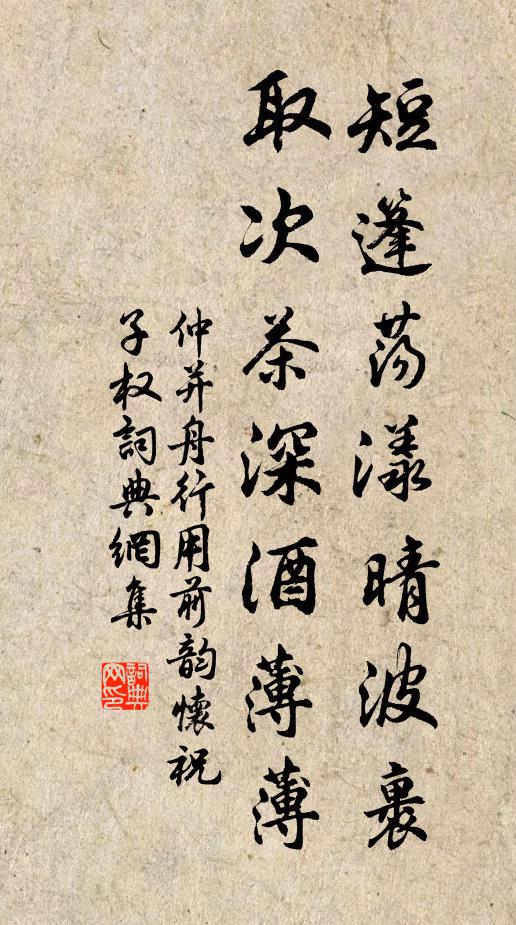 短篷荡漾晴波裹
取次茶深酒薄薄
仲并舟行用前韵懷祝
子权詞典網集
詞典网印